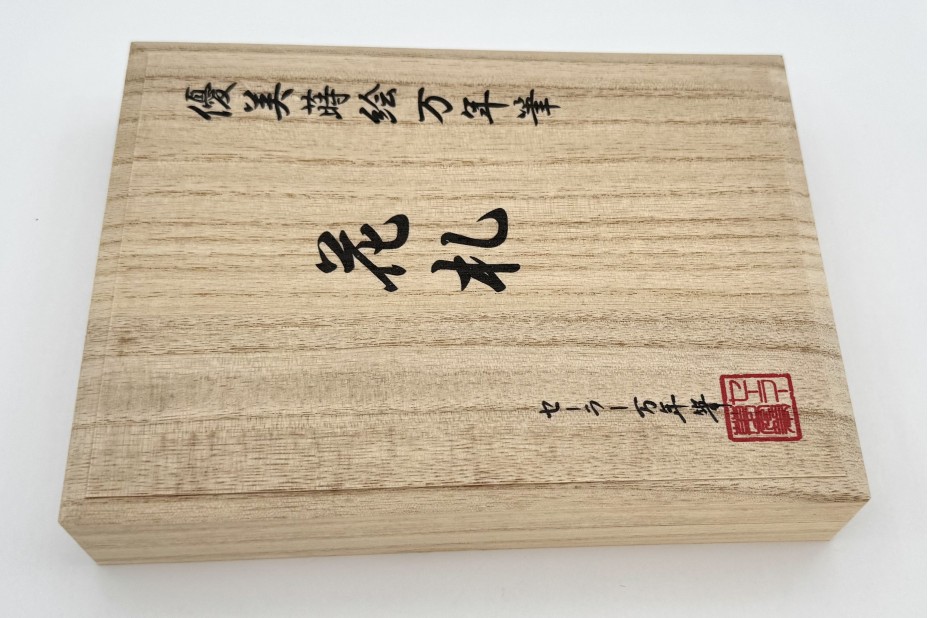 優美蒔絵万年筆
花札
セーラー万年筆